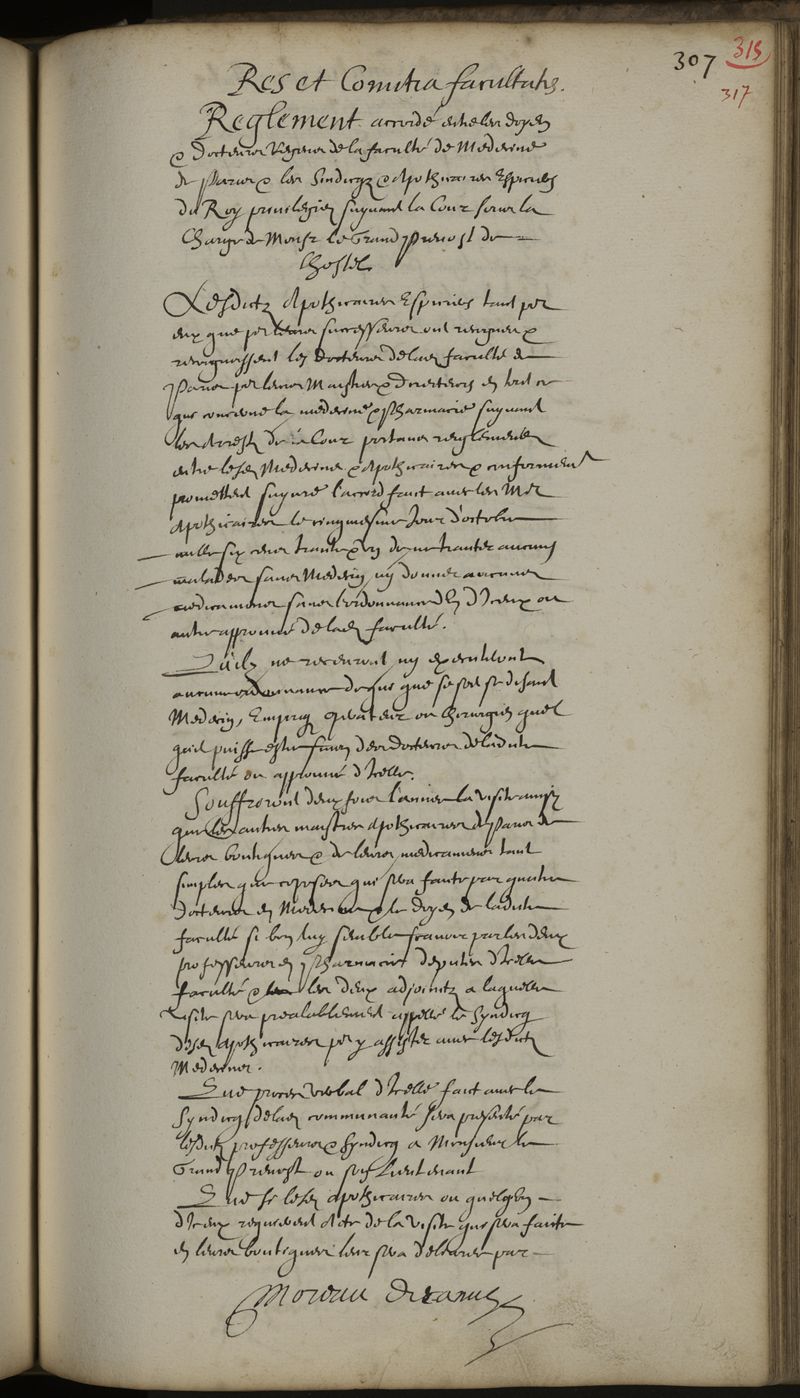 307
315
317
Res et Comitia facultatis.
Reglement accordé entre les doyen
& docteurs Regens de la faculté de Medecine
de Paris & les sindicqz & Apothicaires Espiciers
du Roy privilegiez suyvant la Cour soubz la
Charge de Monsr le Grand Prevost de
l'hostel
Lesdictz Apothicaires Espiciers tant por
eux que por leurs successeurs ont recogneu &
recognoissent les docteurs de lad. faculté de
Paris por leurs Maistres & directeurs en tout ce
que concerne la medecine & pharmacie suyvant
les arrestz de la Cour portans reglement
entre lesd. Medecins & Apothicaires & conformément
promettent suyvre l'accord faict avec les Mes
Apothicaires le cinquiesme Jour d'octobre
mille six cens trente & de ne traiter aucuns
malades sans Medecin, ny donner aucuns
medicamens sans l'ordonnance d'iceux ou
autre approuvé de lad. faculté.
Qu'ilz ne recevront ny executeront
aucune ordonnance de qui que ce soit se disant
Medecin, Empiricq operateur ou Chirurgien quel
qu'il puisse estre sinon des docteurs de ladite
faculté ou approuvé d'icelle.
Souffriront deux fois l'année la visite ainsy
que les autres maistres Apothicaires de Paris de
leurs boutiques & de leurs medicamens tant
simples que composez qui sera faite par quatre
docteurs en Medecine & le doyen de ladite
faculté si bon luy semble scavoir par les deux
professeurs en pharmacie deputez d'icelle
faculté & les deux adjointz a laquelle
visite sera prealablement appellé le syndicq
desd. Apothicaires por y assister avec lesdictz
Medecins.
Que procez verbal d'icelle faict avec le
syndicq de lad. communauté sera presenté par
lesdictz professeurs & syndicq a Monsieur le
Grand Prevost ou son Lieutenant
Que si lesd. Apothicaires ou quelqu'un
d'iceux requierent Acte de la visite qui sera faite
en leurs boutiques leur sera delivré par
Moreau Decanus